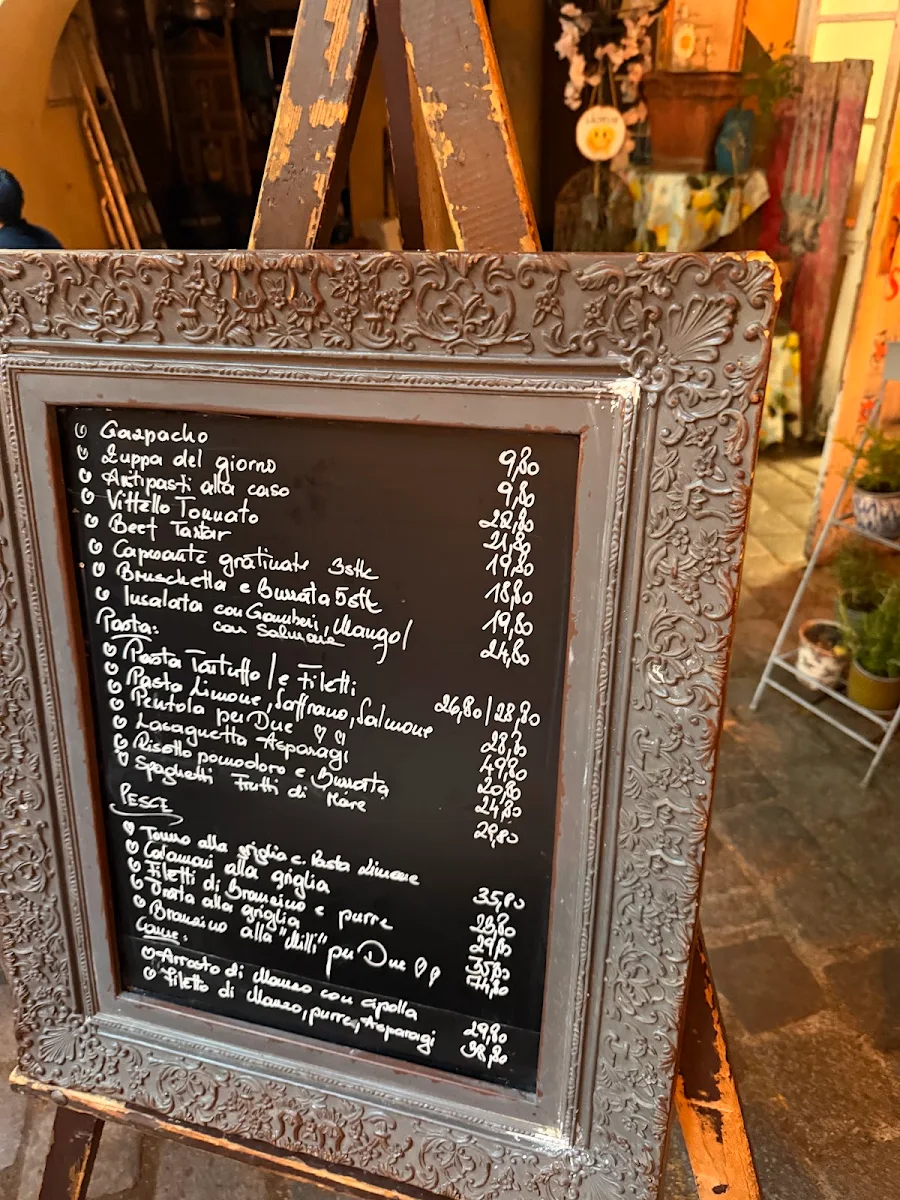 Gazpacho 9,80
Zuppa del giorno 9,80
Antipasti alla casa 22,80
Vittello Tonnato 21,80
Beef Tartar 19,80
Capesante gratinate 3stk 18,80
Bruschetta e Burrata 5stk 19,80
Insalata con Gamberi, Mango/
con Salmone 24,80
Pasta:
Pasta Tartuffo / e Filetti 26,80 / 28,80
Pasta Limone, Saffrano, Salmone 28,80
Pentola per Due 49,80
Lasagnetta Asparagi 20,80
Risotto pomodoro e Burrata 24,80
Spaghetti Frutti di Mare 29,80
PESCE
Tonno alla griglia e Pasta Limone 35,80
Calamari alla griglia 28,80
Filetti di Branzino e purre 29,80
Orata alla griglia 35,80
Branzino alla "Milli" per Due 74,80
Carne:
Arrosto di Manzo con cipolla 29,80
Filetto di Manzo, purre, Asparagi 38,80